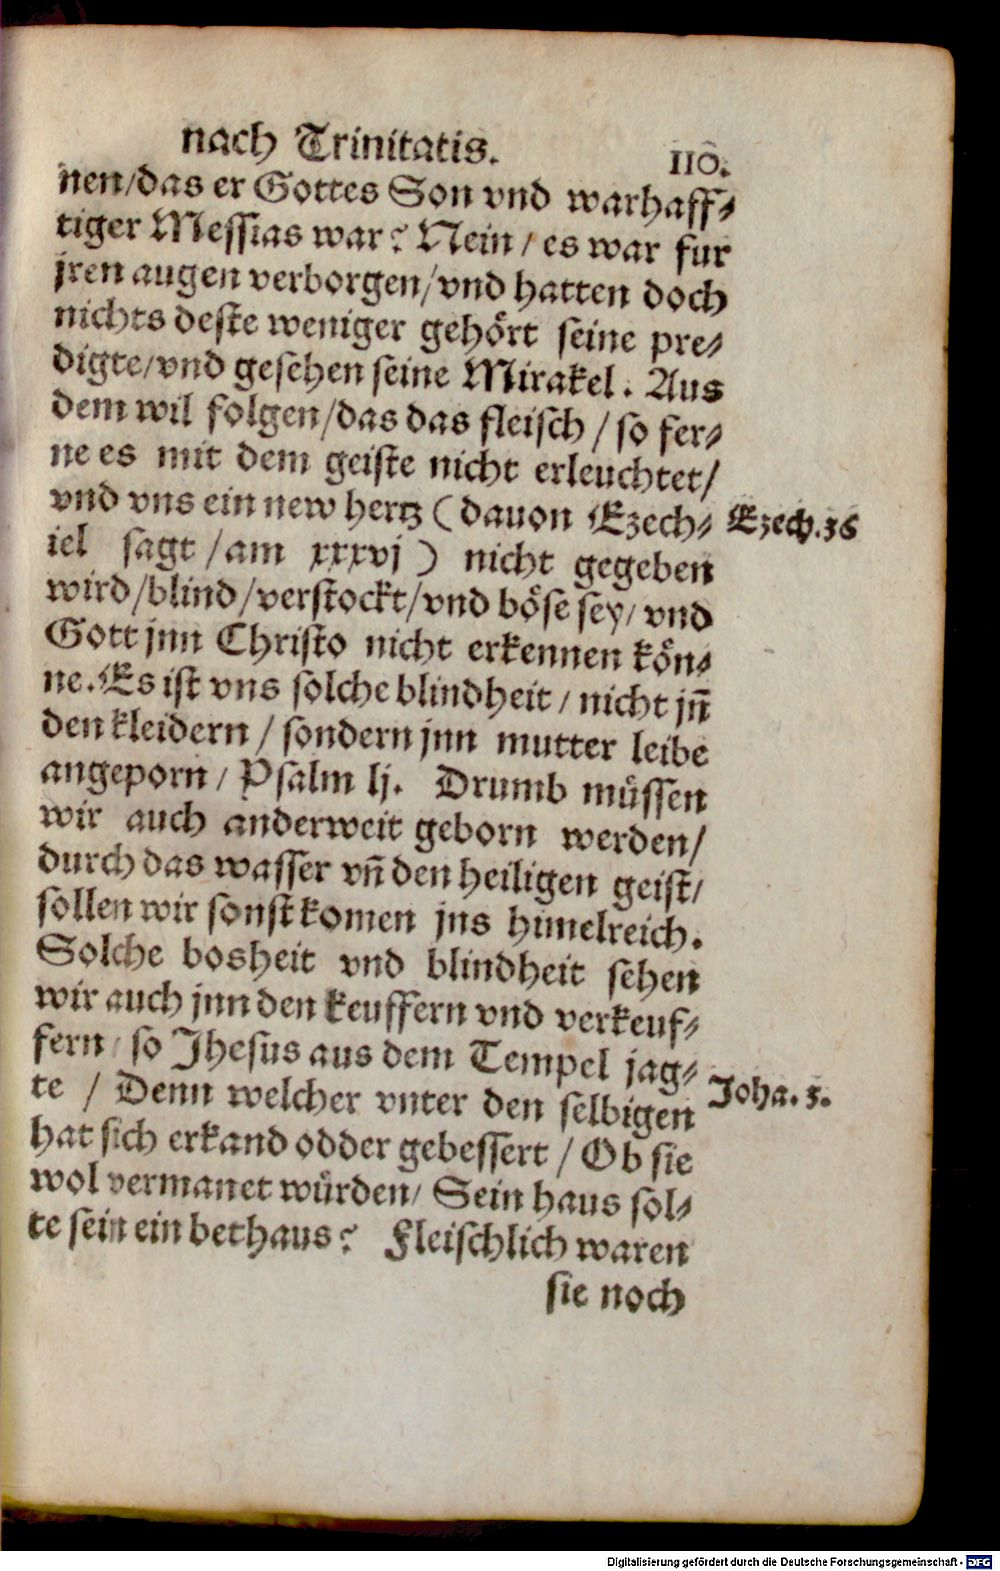 nach Trinitatis.
110.
nen/das er Gottes Son vnd warhaff⸗
tiger Messias war? Nein/ es war fur
jren augen verborgen/vnd hatten doch
nichts deste weniger gehört seine pre⸗
digte/vnd gesehen seine Mirakel. Aus
dem wil folgen/das das fleisch / so fer⸗
ne es mit dem geiste nicht erleuchtet/
vnd vns ein new hertz (dauon Ezech⸗
Ezech.36
iel sagt /am xxxvj ) nicht gegeben
wird/blind/verstockt/vnd böse sey/ vnd
Gott jnn Christo nicht erkennen kön⸗
ne. Es ist vns solche blindheit / nicht jn̄
den kleidern / sondern jnn mutter leibe
angeporn / Psalm lj. Drumb müssen
wir auch anderweit geborn werden/
durch das wasser vn̄ den heiligen geist/
sollen wir sonst komen jns himelreich.
Solche bosheit vnd blindheit sehen
wir auch jnn den keuffern vnd verkeuf⸗
fern/ so Jhesus aus dem Tempel jag⸗
te / Denn welcher vnter den selbigen
Joha. 3.
hat sich erkand odder gebessert / Ob sie
wol vermanet würden/ Sein haus sol⸗
te sein ein bethaus? Fleischlich waren
sie noch
Digitalisierung gefördert durch die Deutsche Forschungsgemeinschaft - DFG